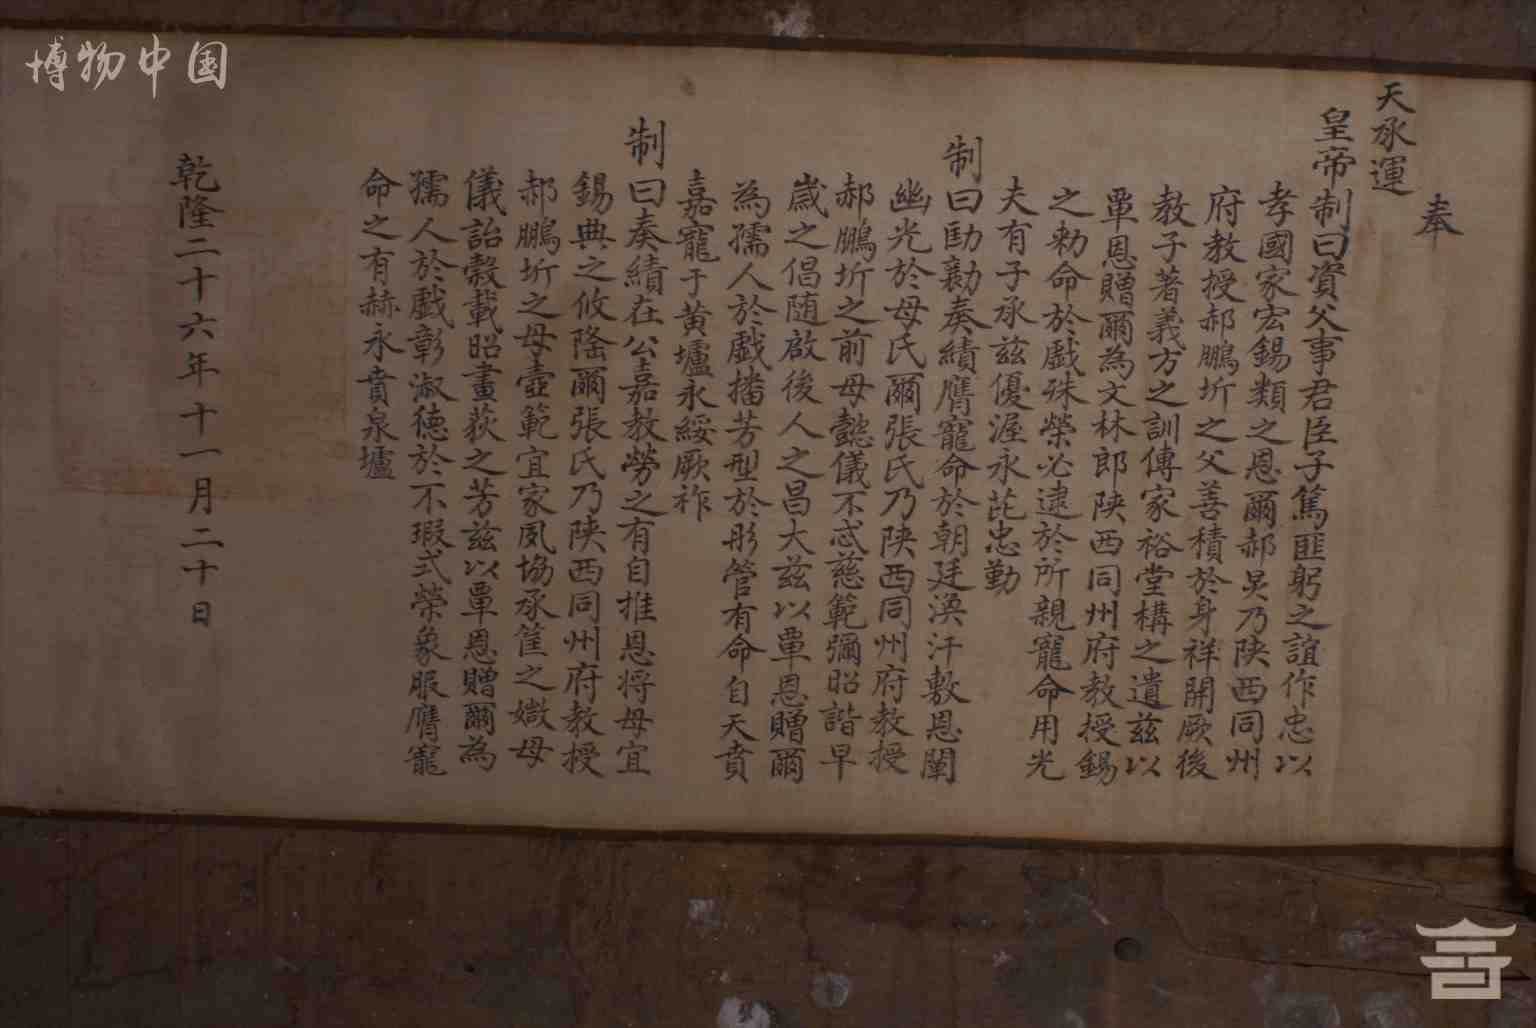 博物中国
奉
天承運
皇帝制曰資父事君臣子篤匪躬之誼作忠以
孝國家宏錫類之恩爾郝炅乃陕西同州
府教授郝鵬圻之父善積於身祥開厥後
教子著義方之訓傳家裕堂構之遺兹以
覃恩贈爾為文林郎陕西同州府教授錫
之勅命於戲殊榮必逮於所親寵命用光
夫有子承兹優渥永茈忠勤
制曰劻勷奏績膺寵命於朝廷渙汗敷恩闡
幽光於母氏爾張氏乃陕西同州府教授
郝鵬圻之前母懿儀不忒慈範彌昭諧早
歲之倡随啟後人之昌大兹以覃恩贈爾
為孺人於戲播芳型於彤管有命自天賁
嘉寵于黄壚永綏厥祚
制曰奏績在公嘉教勞之有自推恩将母宜
錫典之攸隆爾張氏乃陕西同州府教授
郝鵬圻之母壼範宜家夙協承筐之媺母
儀詒穀載昭畫荻之芳兹以覃恩贈爾為
孺人於戲彰淑德於不瑕式榮象服膺寵
命之有赫永賁泉壚
乾隆二十六年十一月二十日